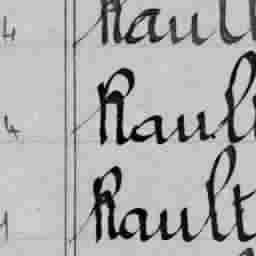 4 Rault
4 Rault
1 Rault